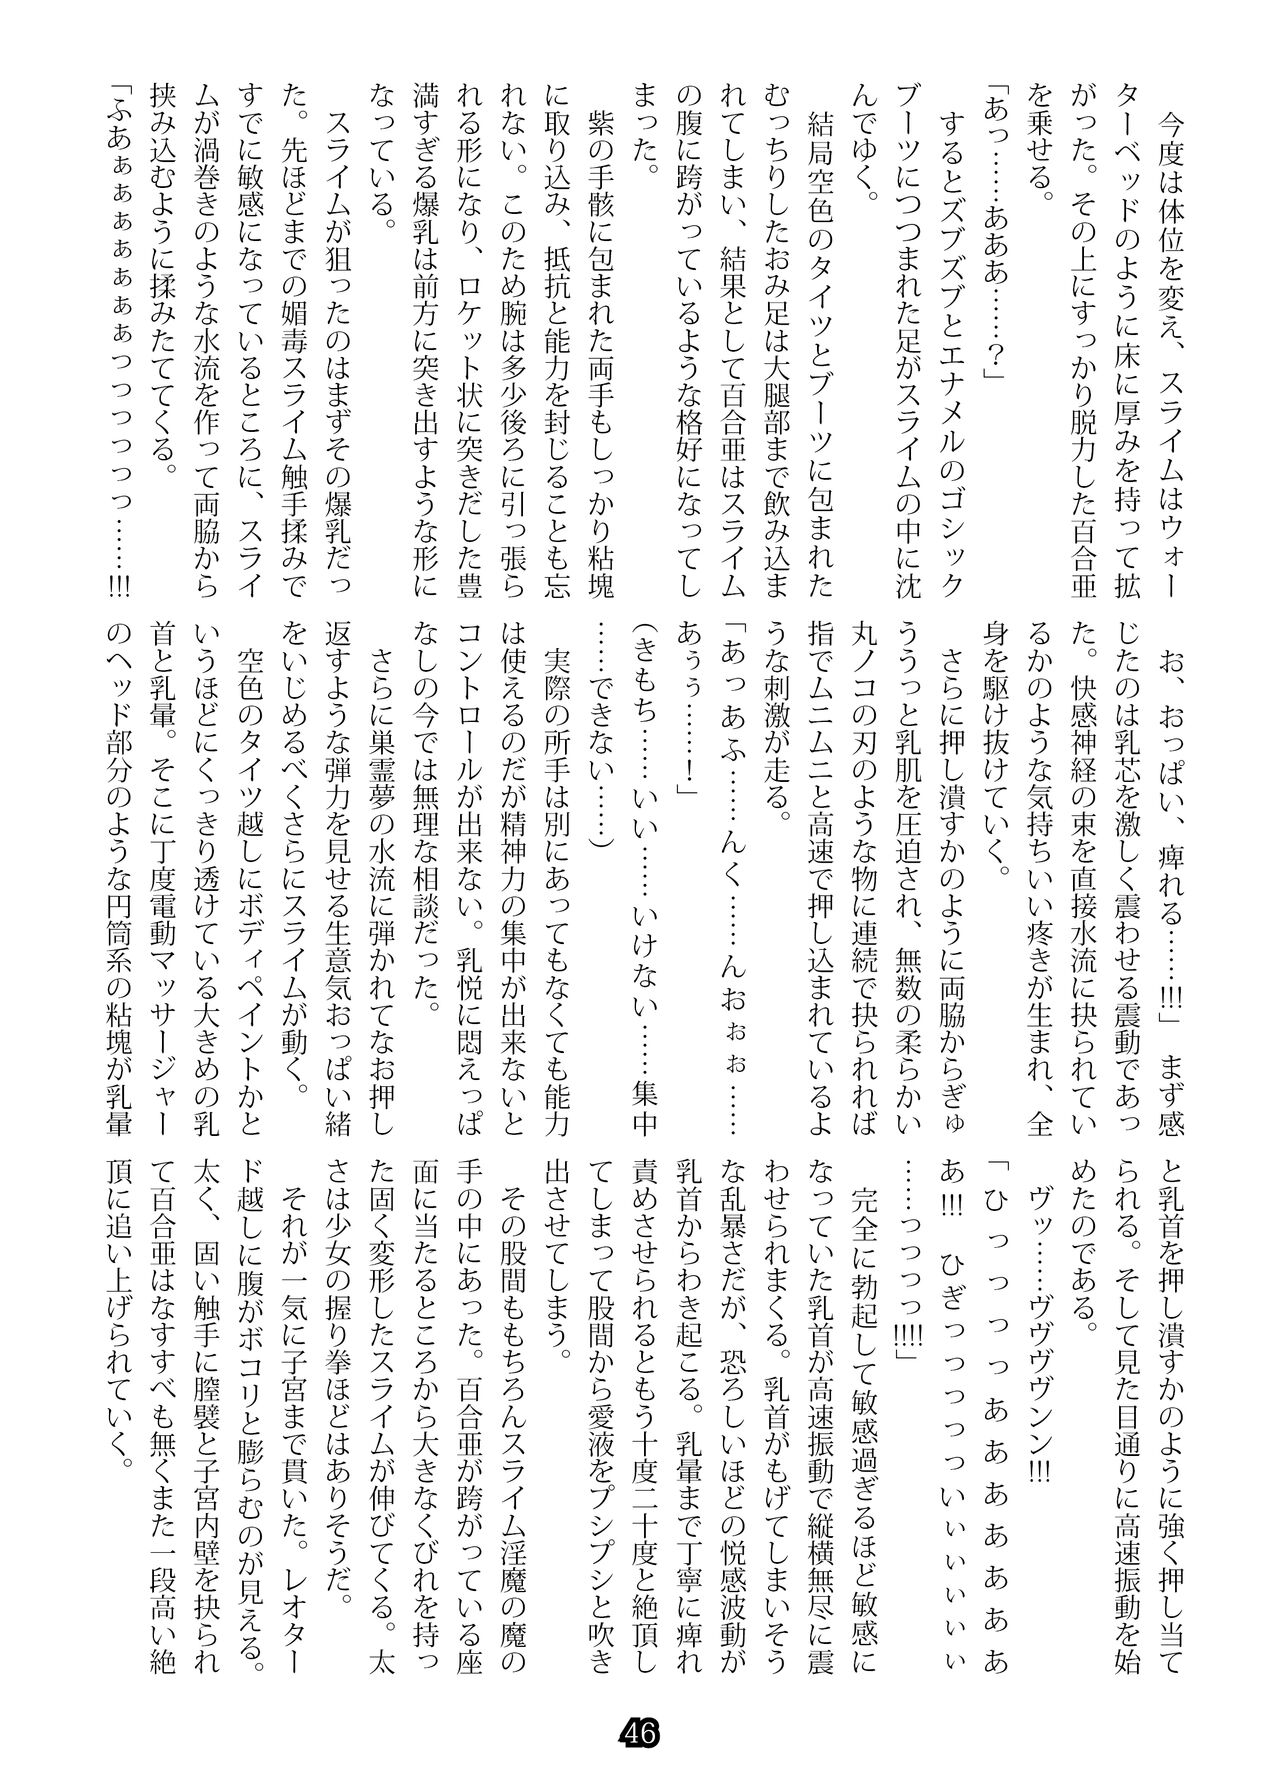 今度は体位を変え、スライムはウォー
ターベッドのように床に厚みを持って拡
がった。その上にすっかり脱力した百合亜
を乗せる。
「あっ……あああ……？」
するとズブズブとエナメルのゴシック
ブーツにつつまれた足がスライムの中に沈
んでゆく。
結局空色のタイツとブーツに包まれた
むっちりしたおみ足は大腿部まで飲み込ま
れてしまい、結果として百合亜はスライム
の腹に跨がっているような格好になってし
まった。
紫の手骸に包まれた両手もしっかり粘塊
に取り込み、抵抗と能力を封じることも忘
れない。このため腕は多少後ろに引っ張ら
れる形になり、ロケット状に突きだした豊
満すぎる爆乳は前方に突き出すような形に
なっている。
スライムが狙ったのはまずその爆乳だっ
た。先ほどまでの媚毒スライム触手揉みで
すでに敏感になっているところに、スライ
ムが渦巻きのような水流を作って両脇から
挟み込むように揉みたててくる。
「ふあぁぁぁぁぁぁぁっっっっっっ……!!!
お、おっぱい、痺れる……!!!」　まず感
じたのは乳芯を激しく震わせる震動であっ
た。快感神経の束を直接水流に抉られてい
るかのような気持ちいい疼きが生まれ、全
身を駆け抜けていく。
さらに押し潰すかのように両脇からぎゅ
ううっと乳肌を圧迫され、無数の柔らかい
丸ノコの刃のような物に連続で抉られれば
指でムニムニと高速で押し込まれているよ
うな刺激が走る。
「あっあふ……んく……んおぉぉ……
あぅぅ……！」
（きもち……いい……いけない……集中
……できない……）
実際の所手は別にあってもなくても能力
は使えるのだが精神力の集中が出来ないと
コントロールが出来ない。乳悦に悶えっぱ
なしの今では無理な相談だった。
さらに巣霊夢の水流に弾かれてなお押し
返すような弾力を見せる生意気おっぱい緒
をいじめるべくさらにスライムが動く。
空色のタイツ越しにボディペイントかと
いうほどにくっきり透けている大きめの乳
首と乳暈。そこに丁度電動マッサージャー
のヘッド部分のような円筒系の粘塊が乳暈
と乳首を押し潰すかのように強く押し当て
られる。そして見た目通りに高速振動を始
めたのである。
ヴッ……ヴヴヴヴンン!!!
「ひっっっっああああああああ
あ!!!　ひぎっっっっっいぃぃぃぃぃ
……っっっっ!!!!」
完全に勃起して敏感過ぎるほど敏感に
なっていた乳首が高速振動で縦横無尽に震
わせられまくる。乳首がもげてしまいそう
な乱暴さだが、恐ろしいほどの悦感波動が
乳首からわき起こる。乳暈まで丁寧に痺れ
責めさせられるともう十度二十度と絶頂し
てしまって股間から愛液をプシプシと吹き
出させてしまう。
その股間ももちろんスライム淫魔の魔の
手の中にあった。百合亜が跨がっている座
面に当たるところから大きなくびれを持っ
た固く変形したスライムが伸びてくる。太
さは少女の握り拳ほどはありそうだ。
それが一気に子宮まで貫いた。レオター
ド越しに腹がボコリと膨らむのが見える。
太く、固い触手に膣襞と子宮内壁を抉られ
て百合亜はなすすべも無くまた一段高い絶
頂に追い上げられていく。
46